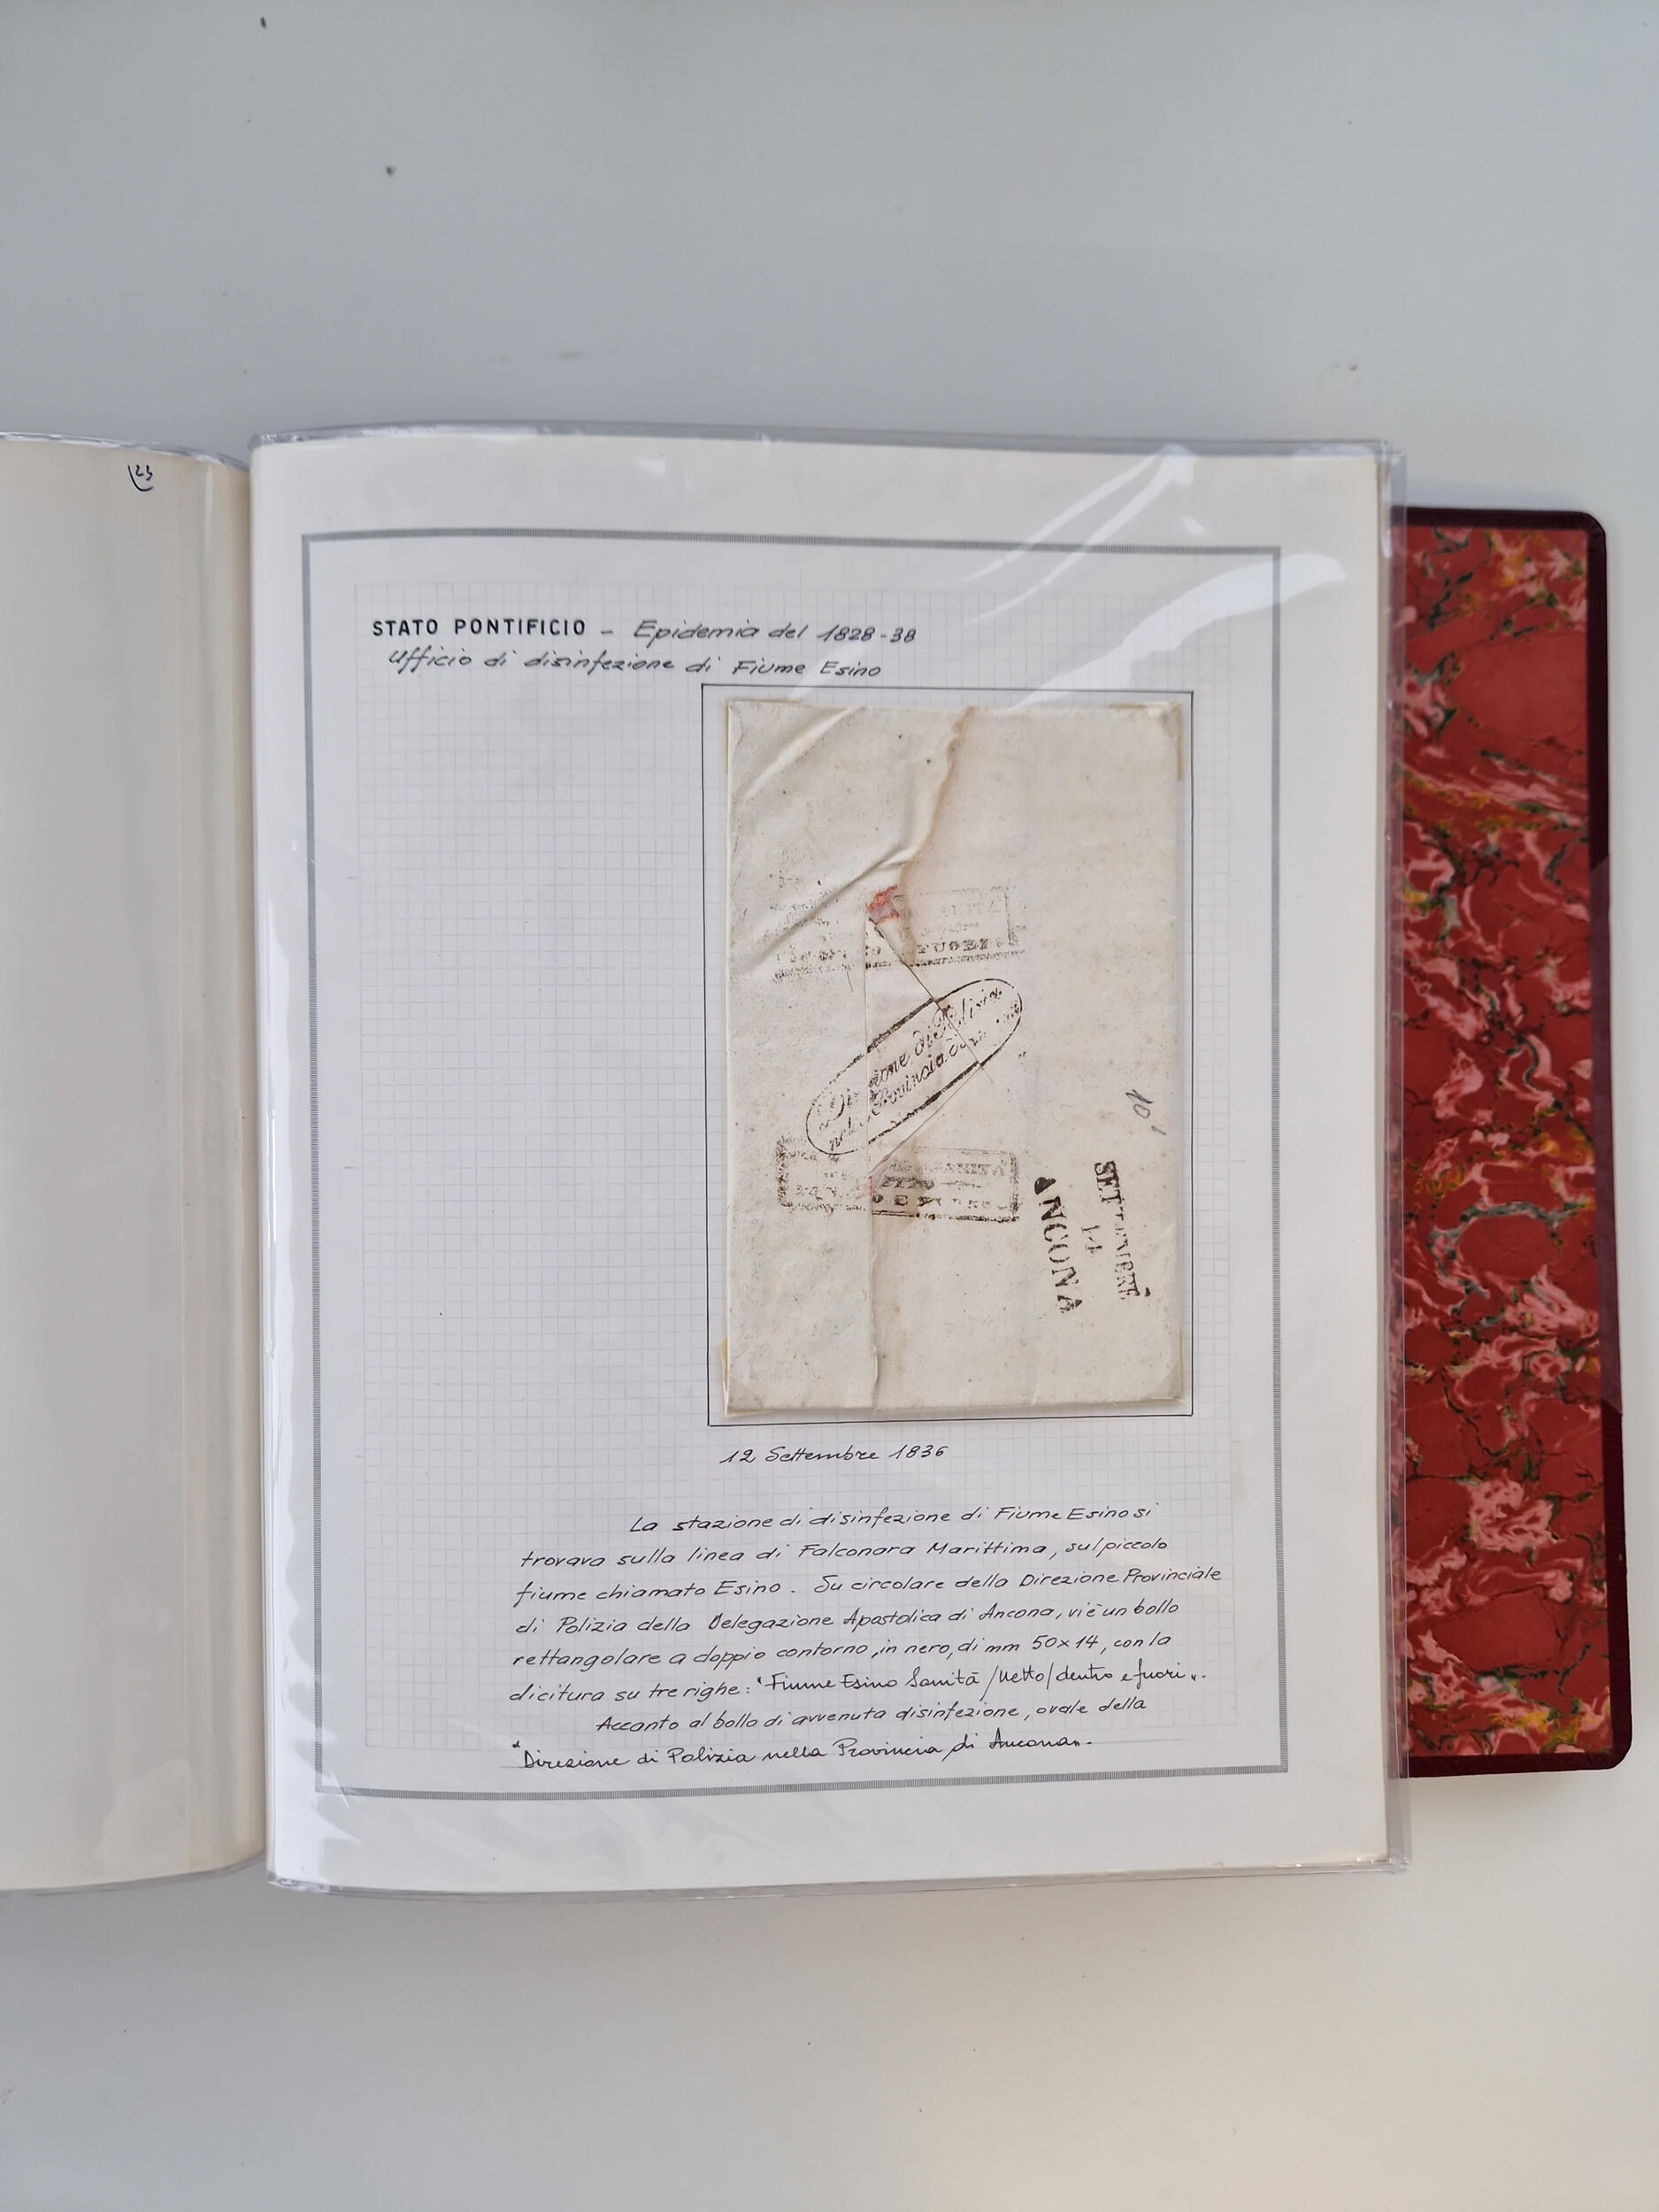 23
STATO PONTIFICIO - Epidemia del 1828-38
Ufficio di disinfezione di Fiume Esino
FUORI
Direzione di Polizia
nella Provincia di
SANITÀ
NETTO
ANCONA
14
SETTEMBRE
12 Settembre 1836
La stazione di disinfezione di Fiume Esino si
trovava sulla linea di Falconara Marittima, sul piccolo
fiume chiamato Esino. Su circolare della Direzione Provinciale
di Polizia della Delegazione Apostolica di Ancona, vi è un bollo
rettangolare a doppio contorno, in nero, di mm 50x14, con la
dicitura su tre righe: "Fiume Esino Sanità / Netto / dentro e fuori".
Accanto al bollo di avvenuta disinfezione, ovale della
"Direzione di Polizia nella Provincia di Ancona".